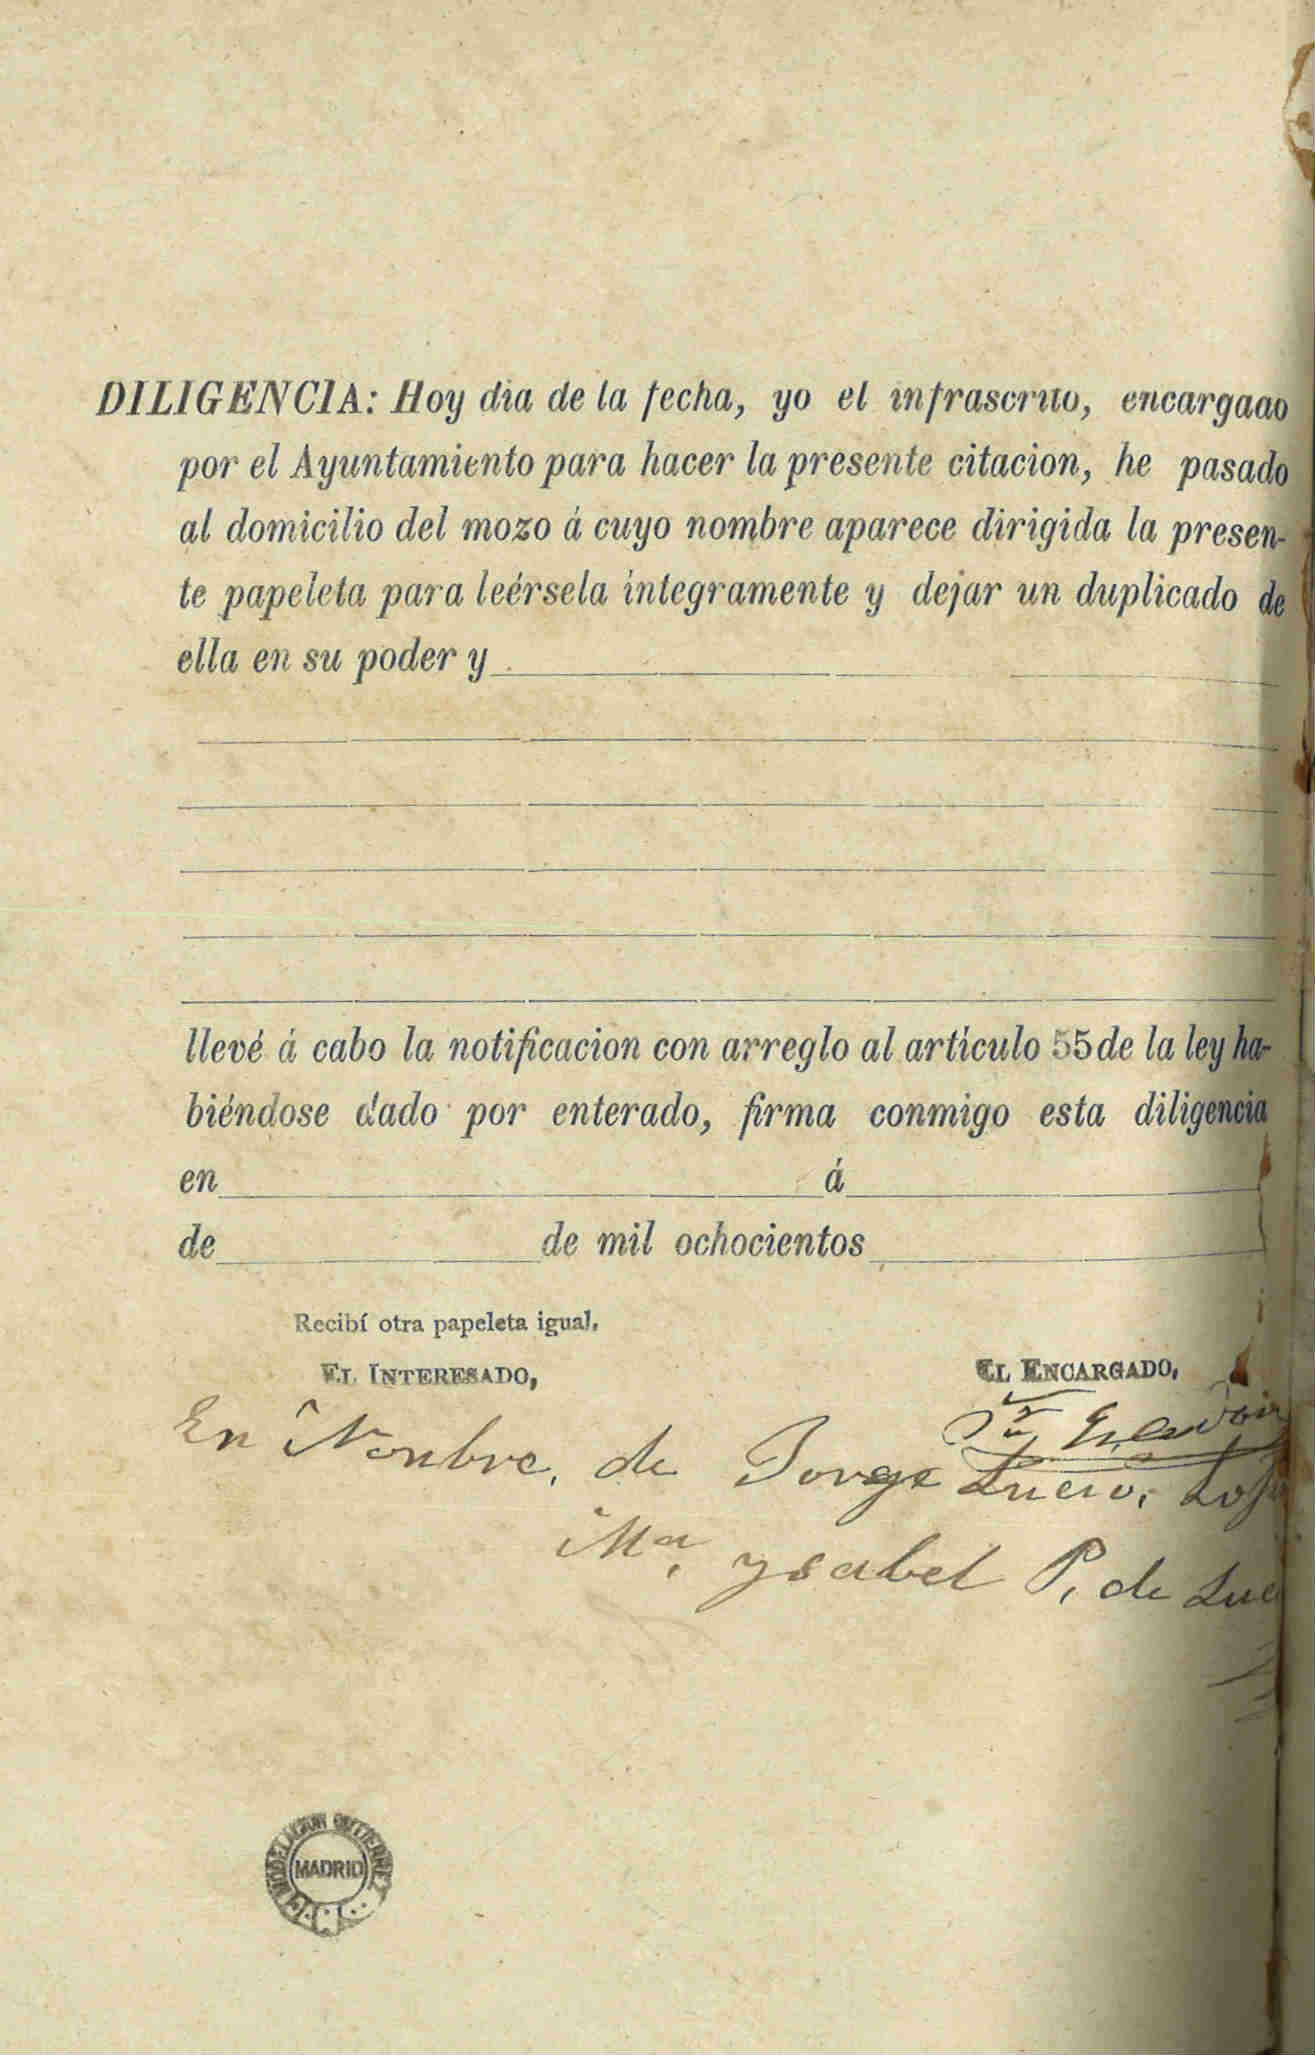 DILIGENCIA: Hoy dia de la fecha, yo el infrascrito, encargado
por el Ayuntamiento para hacer la presente citacion, he pasado
al domicilio del mozo á cuyo nombre aparece dirigida la presen-
te papeleta para leérsela íntegramente y dejar un duplicado de
ella en su poder y
llevé á cabo la notificacion con arreglo al artículo 55 de la ley ha-
biéndose dado por enterado, firma conmigo esta diligencia
en á
de de mil ochocientos
Recibí otra papeleta igual.
EL INTERESADO, EL ENCARGADO,
En Nonbre, de Jorge Lucio,
Mª, ysabel P, de
MODELACION GUTIERREZ
MADRID